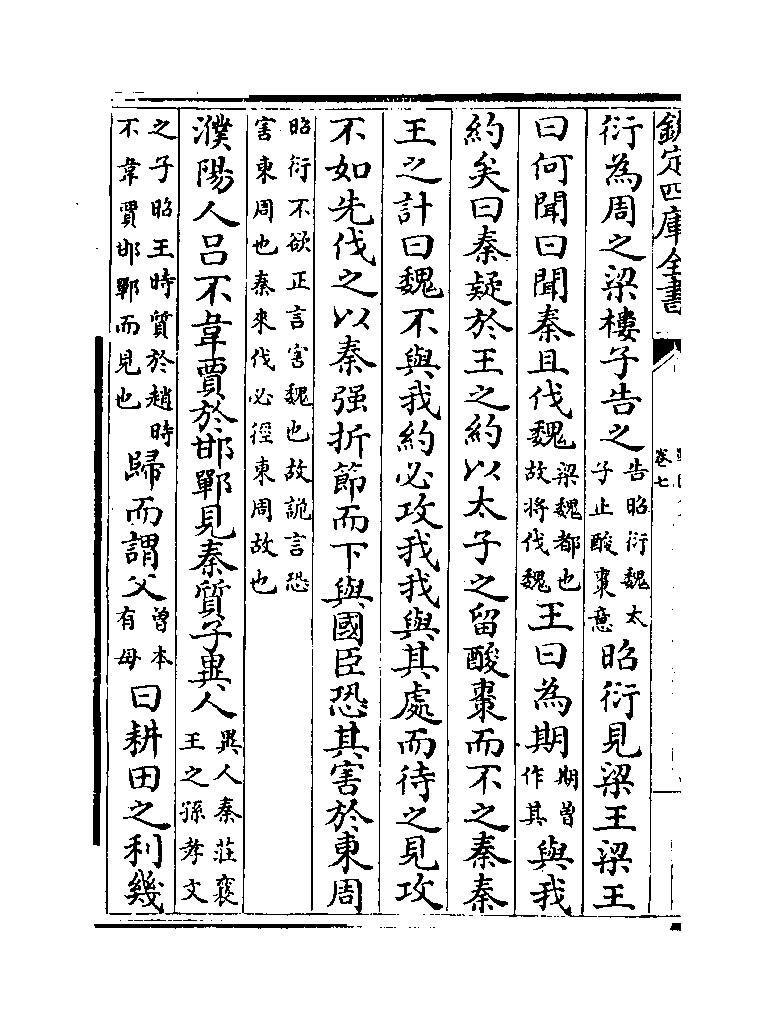 欽定四庫全書
卷七
衍為周之梁樓子告之告昭衍魏太子止酸棗意昭衍見梁王梁王
曰何聞曰聞秦且伐魏梁魏都也故將伐魏王曰為期期曾作其與我
約矣曰秦疑於王之約以太子之留酸棗而不之秦秦
王之計曰魏不與我約必攻我我與其處而待之見攻
不如先伐之以秦强折節而下與國臣恐其害於東周
昭衍不欲正言害魏也故詭言恐害東周也秦來伐必徑東周故也
濮陽人呂不韋賈於邯鄲見秦質子異人異人秦莊襄王之孫孝文
之子昭王時質於趙時不韋賈邯鄲而見也歸而謂父曾本有母曰耕田之利幾